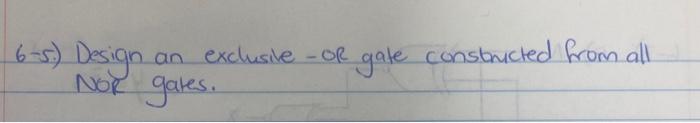 6-5.) Design an exclusive-OR gate constructed from all
NOR gates.